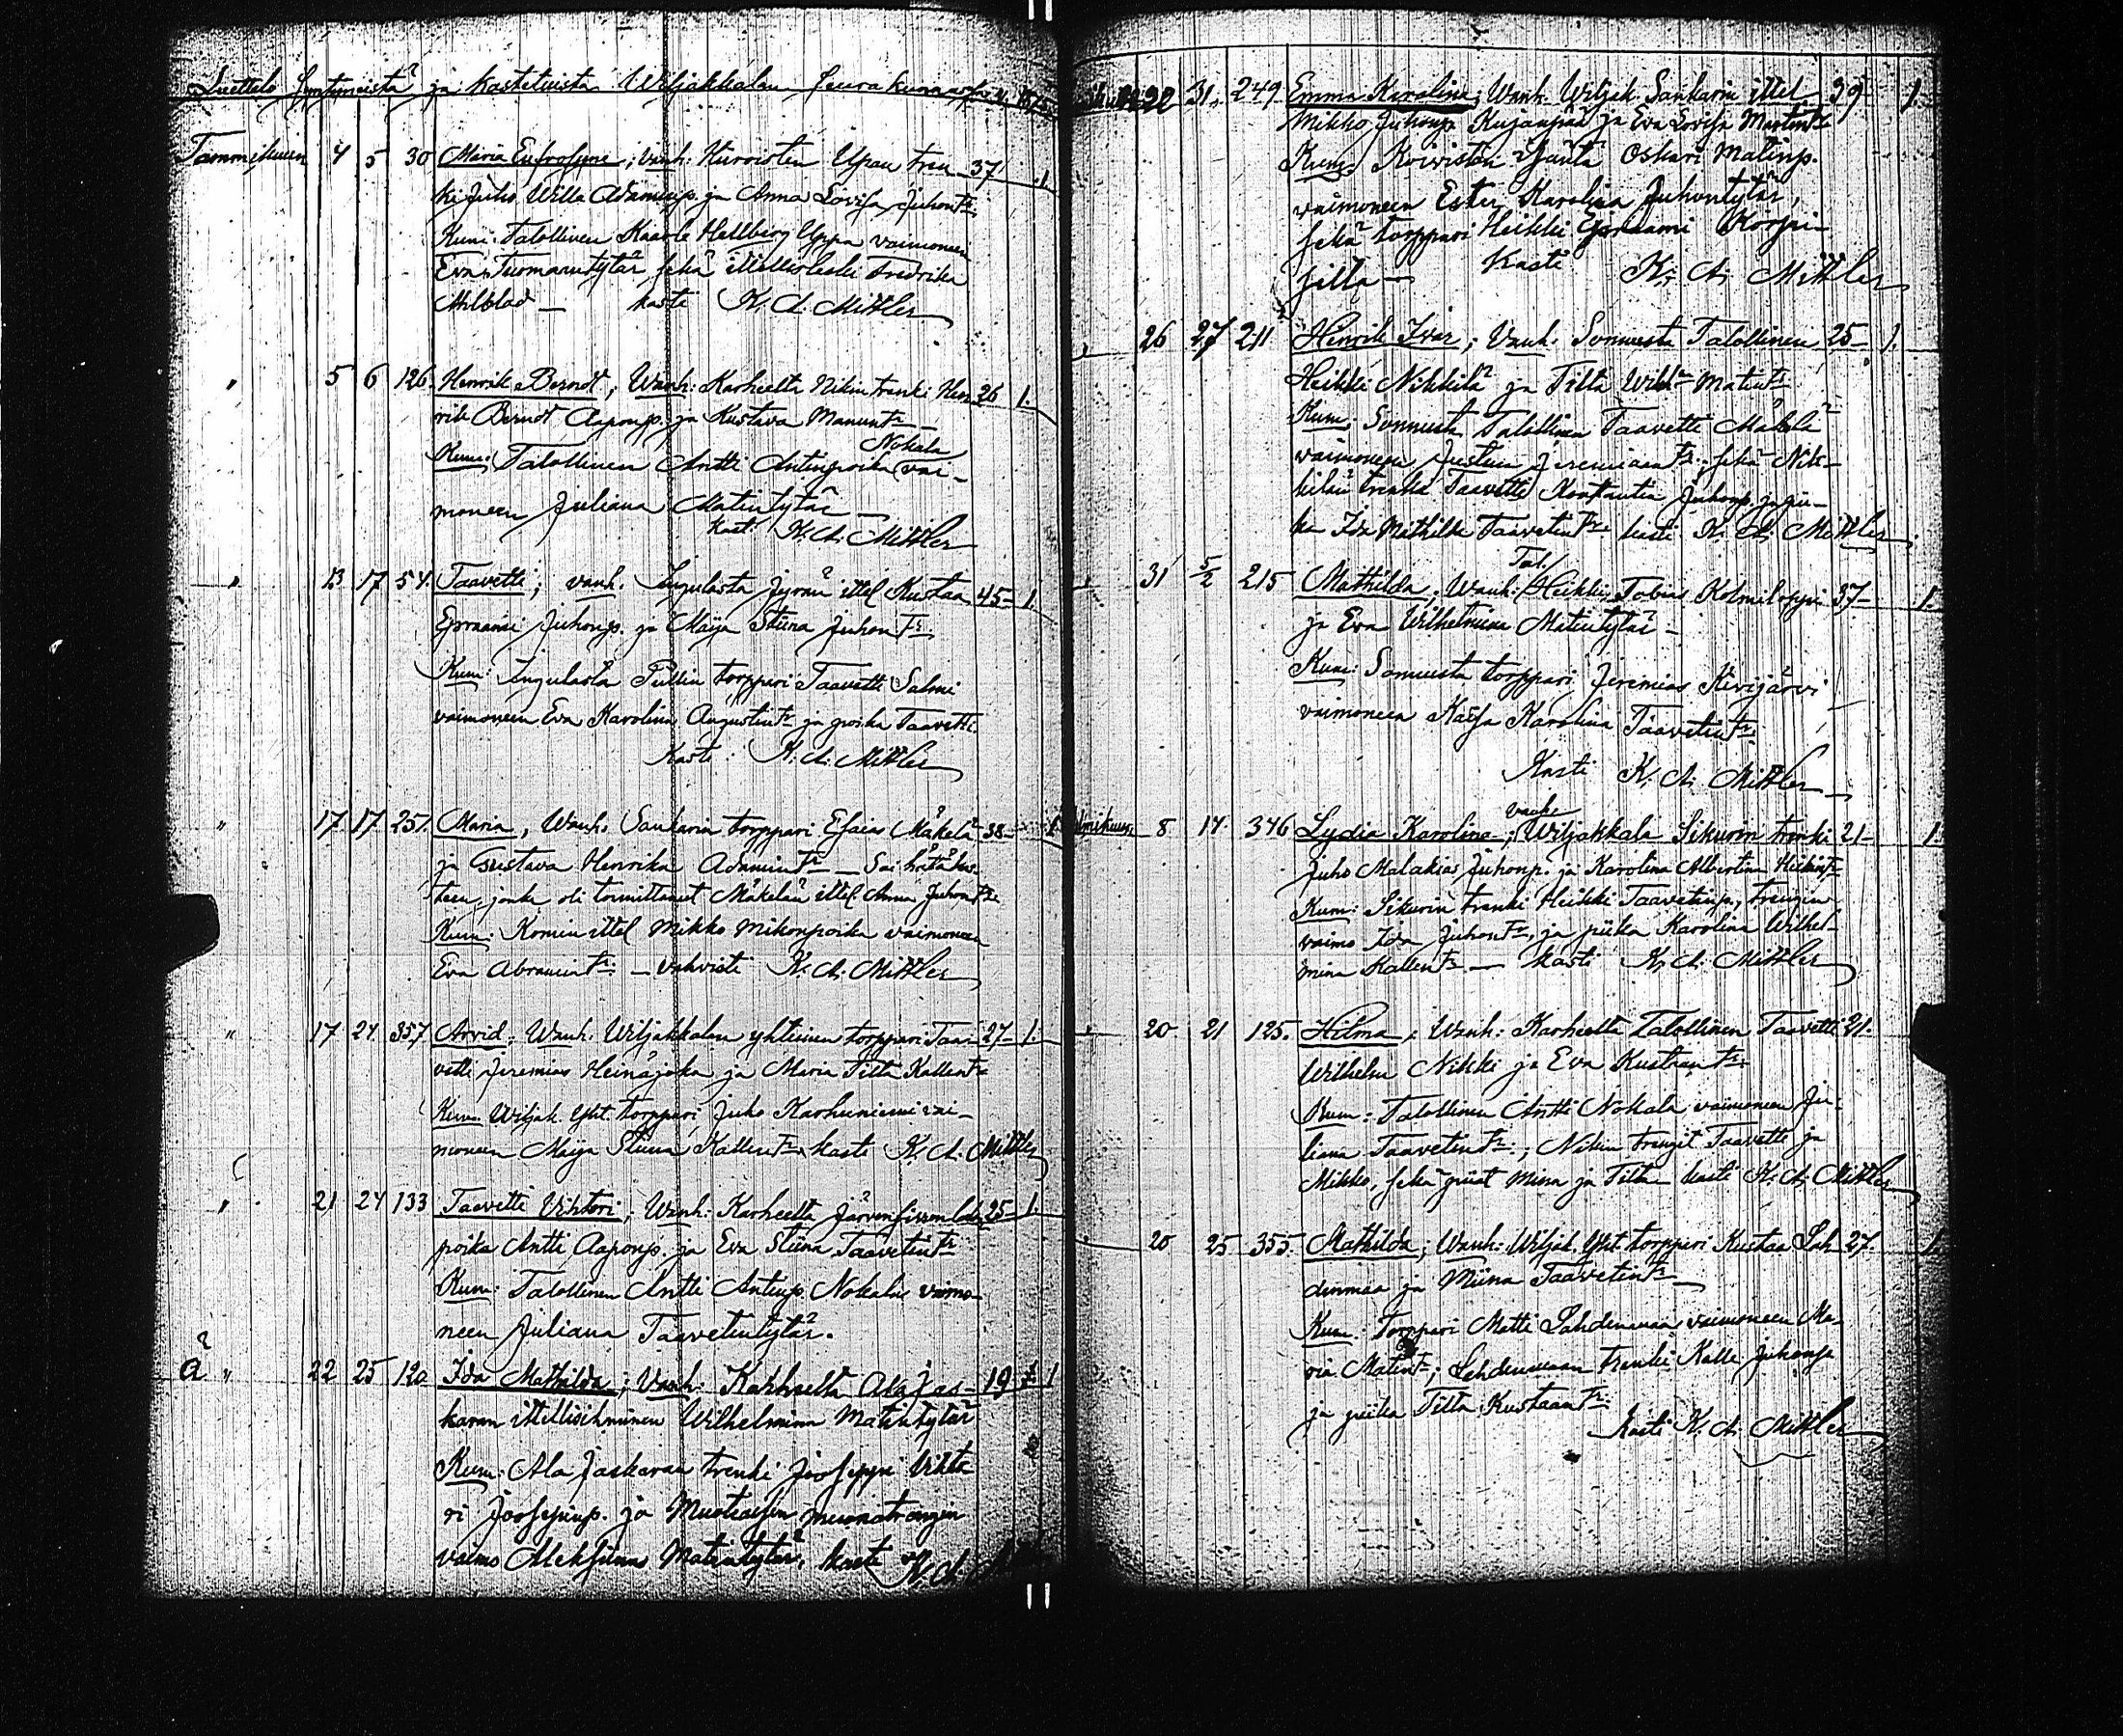 Luettelo syntyneistä ja kastetuista Wiljakkalan seurakunnassa
Tammikuun 4 5 30 Maria Eufrosyne; vanh: Upan tren- 37 1.
ki Juho Wille Adaminp. ja Anna Lovisa Juhontr.
Kum: Talollinen Kaarle Hellberg Uppa vaimoneen
Eva Tuomaantytär sekä ittellisleski Fredrika
Ahlblad — kasti K. A. Mittler
" 5 6 126. Henrik Berndt; Wanh: Karheelta Nikin trenki Hen- 26 1.
rik Berndt Aaponp. ja Kustava Manuntr.
Nokala
Kum: Talollinen Antti Antinpoika vai-
moneen Juliana Matintytär —
kast. K. A. Mittler
" 13 17 54. Taavetti; vanh. Inkulasta Jyrän ittel Kustaa 45- 1.
Epraami Juhonp. ja Maija Stiina Juhontr.
Kum: Inkulasta Pullin torppari Taavetti Salmi
vaimoneen Eva Karolina Augustintr. ja poika Taavetti.
Kasti: K. A. Mittler
" 17 17 251. Maria, Wanh. Sankarin torppari Esaias Mäkelä 38- 1.
ja Gustava Henrika Adamintr. — Sai hätäkas-
teen, jonka oli toimittanut Mäkelän ittel. Anna Juhontr.
Kum: Komin ittel Mikko Mikonpoika vaimoneen
Eva Abramintr. — vahvisti K. A. Mittler
" 17 24 357 Arvid; Wanh. Wiljakkalan yhteinen torppari Taa- 27- 1.
vetti Jeremias Heinäjoka ja Maria Tilta Kallentr.
Kum. Wiljak. Yht. torppari Juho Karhuniemi vai-
moneen Maija Stiina Kallentr. kasti K. A. Mittler
" 21 24 133 Taavetti Vihtori; Wanh: Karheelta 25- 1.
poika Antti Aaponp. ja Eva Stiina Taavetintr.
Kum: Talollinen Antti Antinp. Nokala vaimo-
neen Juliana Taavetintytär.
Ä " 22 25 120. Ida Mathilda; Vanh: Karheelta Ala Jas- 19 1
karan ittellisihminen Wilhelmina Matintytär
Kum: Ala Jaskaran trenki Jooseppi Vihto
ri Joosepinp. ja muonatrengin
vaimo Matintytär, kasti K. A.
22 31. 249 Emma Karolina; Wanh. Wiljak. Sankarin ittel 39 1.
Mikko Juhonp. Kujanpää ja Eva Lovisa Martintr.
Kum: Koiviston Oskari Matinp.
vaimoneen Ester Karolina Juhontytär,
sekä torppari Heikki Epraami Korpi-
silta — Kasti K. A. Mittler
" 26 27 211 Henrik Ivar; Vanh. Sonnusta Talollinen 25- 1.
Heikki Nikkilä ja Tilta Matintr.
Kum: Sonnusta Talollinen Taavetti Mäkelä
vaimoneen Justina Jeremiaantr.; sekä Nik-
kilän trenki Taavetti Juhonp. ja pii-
ka Ida Mathilda Taavetintr. kasti K. A. Mittler
Tal.
" 31 5/2 215 Mathilda; Wanh: Heikki Tobias Kolmiloppi 37- 1.
ja Eva Wilhelmina Matintytär —
Kum: Sonnusta torppari Jeremias Kivijärvi
vaimoneen Kaisa Karolina Taavetintr.
Kasti K. A. Mittler
vanhe
Helmikuun 8 14. 346 Lydia Karolina; Wiljakkala Sikurin trenki 21- 1.
Juho Malakias Juhonp. ja Karolina Albertina Heikintr.
Kum: Sikurin trenki Heikki Taavetinp., trengin
vaimo Ida Juhontr. ja piika Karolina Wilhel-
mina Kallentr. — kasti K. A. Mittler
" 20. 21 125. Hilma; Wanh: Karheelta Talollinen Taavetti 21.
Wilhelm Nikki ja Eva Kustaantr.
Kum: Talollinen Antti Nokala vaimoneen Ju-
liana Taavetintr.; Nikin trengit Taavetti ja
Mikko, sekä piiat Mina ja Tilta kasti K. A. Mittler
" 20 25 355. Mathilda; Wanh: Wiljak. Yht. torppari Kustaa Lah- 27. 1.
dinmaa ja Miina Taavetintr. —
Kum: Torppari Matti Lahdenmaa vaimoneen Ma-
ria Matintr.; Lahdenmaan trenki Kalle Juhonp.
ja piika Tilta Kustaantr.
Kasti K. A. Mittler